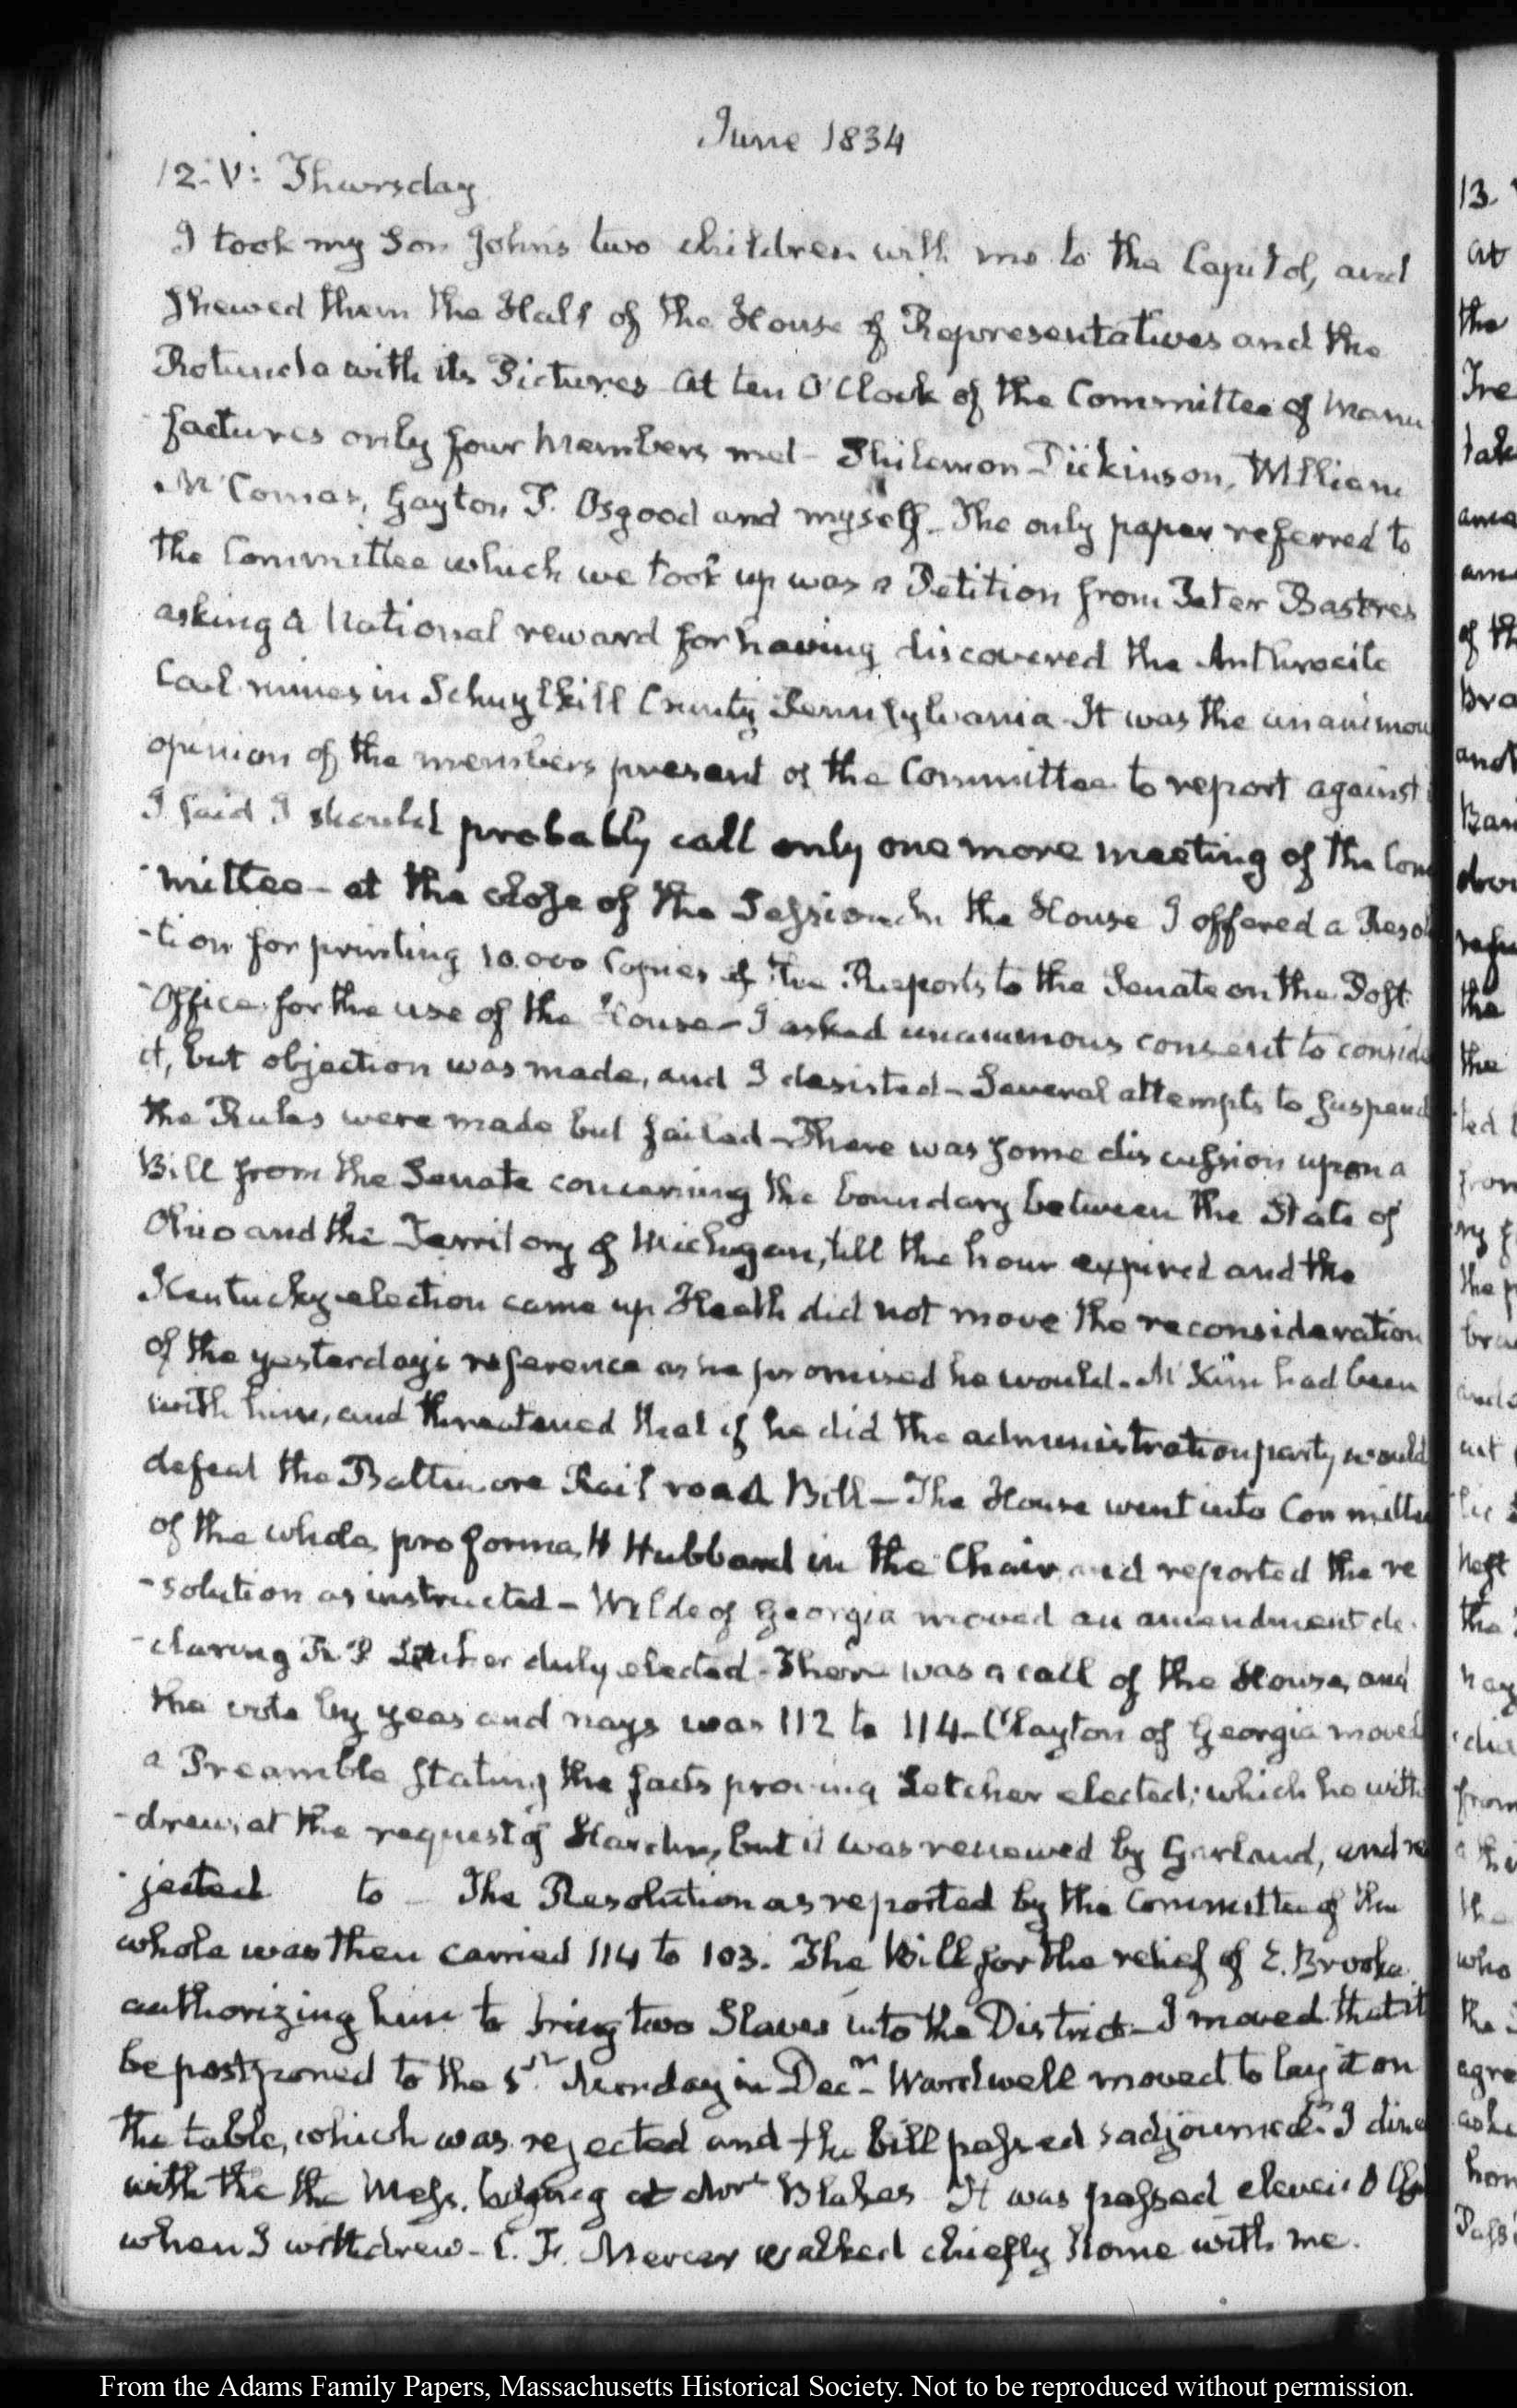 June 1834
12. V: Thursday
I took my Son John's two children with me to the Capitol, and
shewed them the Hall of the House of Representatives and the
Rotunda with its Pictures At ten O'Clock of the Committee of Manu
-factures only four Members met - Philemon Dickinson, William
McComas, Gayton P. Osgood and myself - The only paper referred to
the Committee which we took up was a Petition from Peter Bastres
asking a National reward for having discovered the Anthracite
Coal mines in Schuylkill County Pennsylvania - It was the unanimou
opinion of the members present of the Committee to report against
I said I should probably call only one more meeting of the Com
-mittee - at the close of the Session. In the House I offered a Resol
-tion for printing 10.000 Copies of the Reports to the Senate on the Post
-Office for the use of the House - I asked unanimous consent to conside
it, but objection was made, and I desisted - Several attempts to suspend
the Rules were made but failed - There was some discussion upon a
Bill from the Senate concerning the boundary between the State of
Ohio and the Territory of Michigan, till the hour expired and the
Kentucky election came up Heath did not move the reconsideration
of the yesterday's reference as he promised he would. McKim had been
with him, and threatened that if he did the administration party would
defeat the Baltimore Rail road Bill - The House went into Committe
of the whole, pro forma, H Hubbard in the Chair, and reported the re
-solution as instructed - Wilde of Georgia moved an amendment de.
-claring R. P Letcher duly elected - There was a call of the House, and
the vote by yeas and nays was 112 to 114 - Clayton of Georgia moved
a Preamble stating the facts proving Letcher elected; which he with
-drew, at the request of Hardin, but it was renewed by Garland, and re
-jected to - The Resolution as reported by the Committee of the
whole was then carried 114 to 103. The Bill for the relief of E. Brooke
authorizing him to bring two Slaves into the District - I moved that it
be postponed to the 1st Monday in Decr - Wardwell moved to lay it on
the table, which was rejected and the bill passed adjourned. I dine
with the the Mess. lodging at Mrs Blakes It was passed eleven O Clo
when I withdrew - C. F. Mercer walked chiefly Home with me.
13.
at
the
Tre
of th
Bra
and
Ban
the
the
from
the
who
the
agre
hon
From the Adams Family Papers, Massachusetts Historical Society. Not to be reproduced without permission.